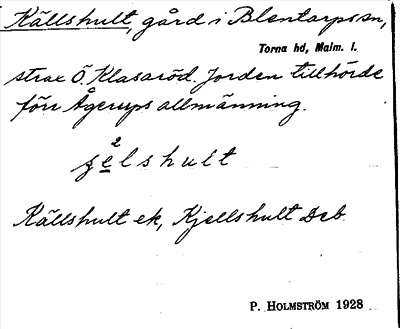 Källshult, gård i Blentarps sn,
Torna hd, Malm. l.
strax Ö. Klasaröd. Jorden tillhörde
förr Ågerups allmänning.
2
şelshult
Källshult ek, Kjellshult Deb.
P. HOLMSTRÖM 1928